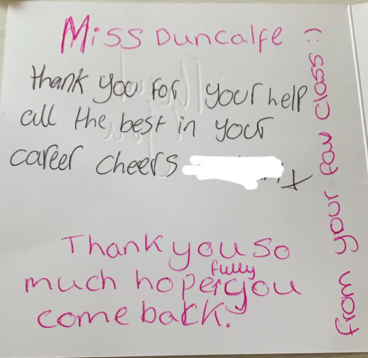 Miss Duncalfe
thank you for your help
all the best in your
career cheers
x
Thank you so
much hopefully you
come back.
from your fav class :)